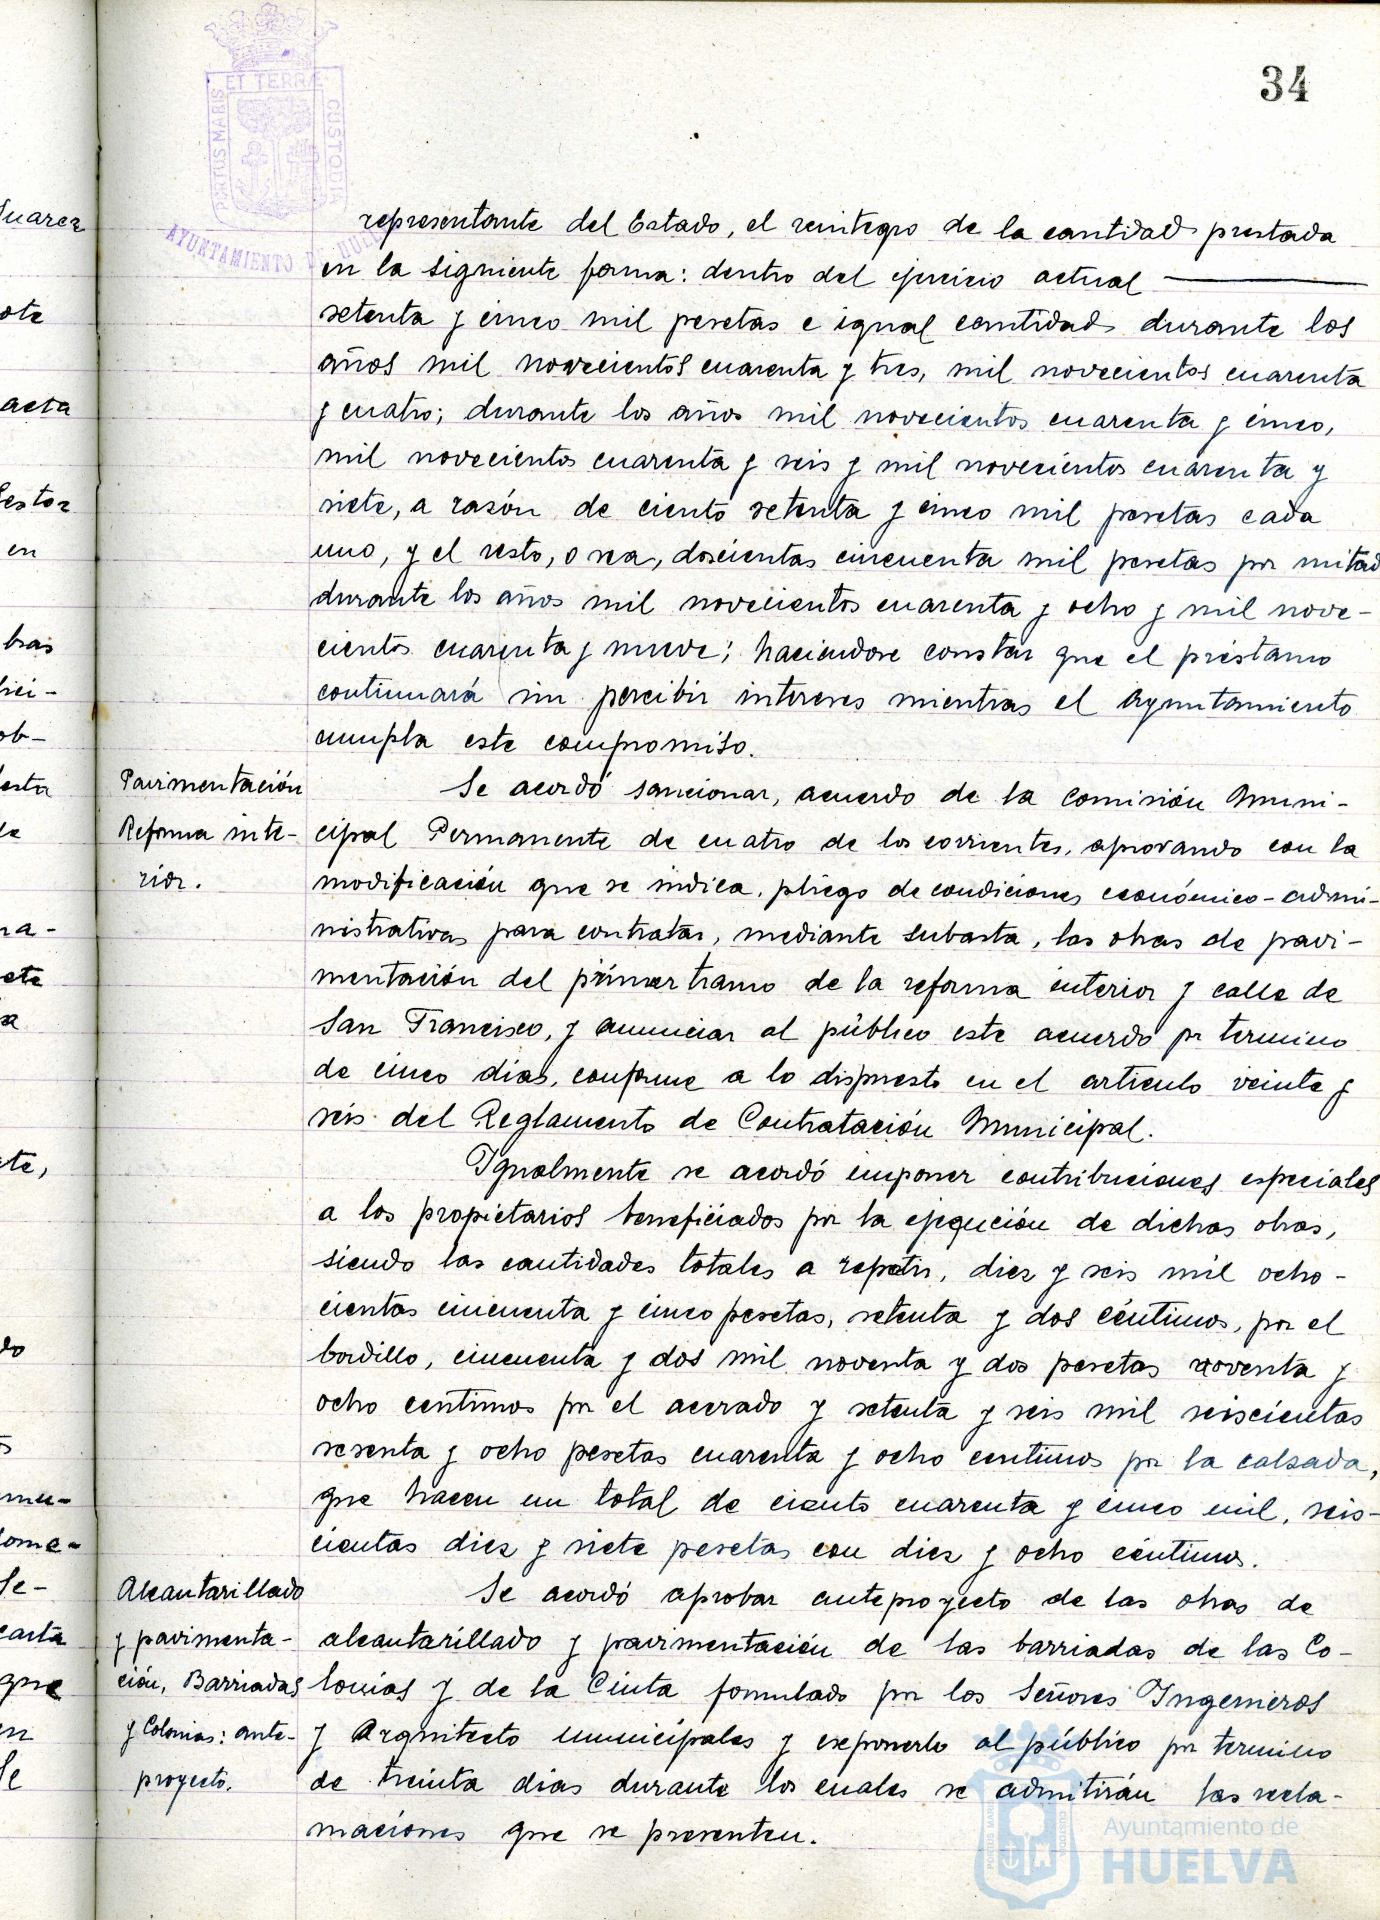 34
PORTUS MARIS ET TERRAE CUSTODIA
AYUNTAMIENTO DE HUELVA
representante del Estado, el reintegro de la cantidad prestada
en la siguiente forma: dentro del ejercicio actual
setenta y cinco mil pesetas e igual cantidad durante los
años mil novecientos cuarenta y tres, mil novecientos cuarenta
y cuatro; durante los años mil novecientos cuarenta y cinco,
mil novecientos cuarenta y seis y mil novecientos cuarenta y
siete, a rasón de ciento setenta y cinco mil pesetas cada
uno, y el resto, o sea, doscientas cincuenta mil pesetas por mitad
durante los años mil novecientos cuarenta y ocho y mil nove-
cientos cuarenta y nueve; haciendose constar que el préstamo
continuará sin percibir intereses mientras el Ayuntamiento
cumpla este compromiso.
Pavimentación
Reforma inte-
rior.
Se acordó sancionar, acuerdo de la Comisión Muni-
cipal Permanente de cuatro de los corrientes, aprovando con la
modificación que se indica, pliego de condiciones económico-admi-
nistrativas para contratar, mediante subasta, las obras de pavi-
mentación del primer tramo de la reforma interior y calle de
San Francisco, y anunciar al público este acuerdo por termino
de cinco dias, conforme a lo dispuesto en el articulo veinte y
seis del Reglamento de Contratación Municipal.
Igualmente se acordó imponer contribuciones especiales
a los propietarios beneficiados por la ejecución de dichas obras,
siendo las cantidades totales a repetir, diez y seis mil ocho-
cientas cincuenta y cinco pesetas, setenta y dos céntimos, por el
bordillo, cincuenta y dos mil noventa y dos pesetas noventa y
ocho centimos por el acerado y setenta y seis mil seiscientas
sesenta y ocho pesetas cuarenta y ocho centimos por la calsada,
que hacen un total de ciento cuarenta y cinco mil, seis-
cientas diez y siete pesetas con diez y ocho céntimos.
Alcantarillado
y pavimenta-
ción, Barriadas
y Colonias: ante-
proyecto.
Se acordó aprobar anteproyecto de las obras de
alcantarillado y pavimentación de las barriadas de las Co-
lonias y de la Cinta formulado por los Señores Ingenieros
y Arquitecto municipales y exponerlo al público por termino
de treinta dias durante los cuales se admitirán las recla-
maciones que se presenten.
Ayuntamiento de
HUELVA